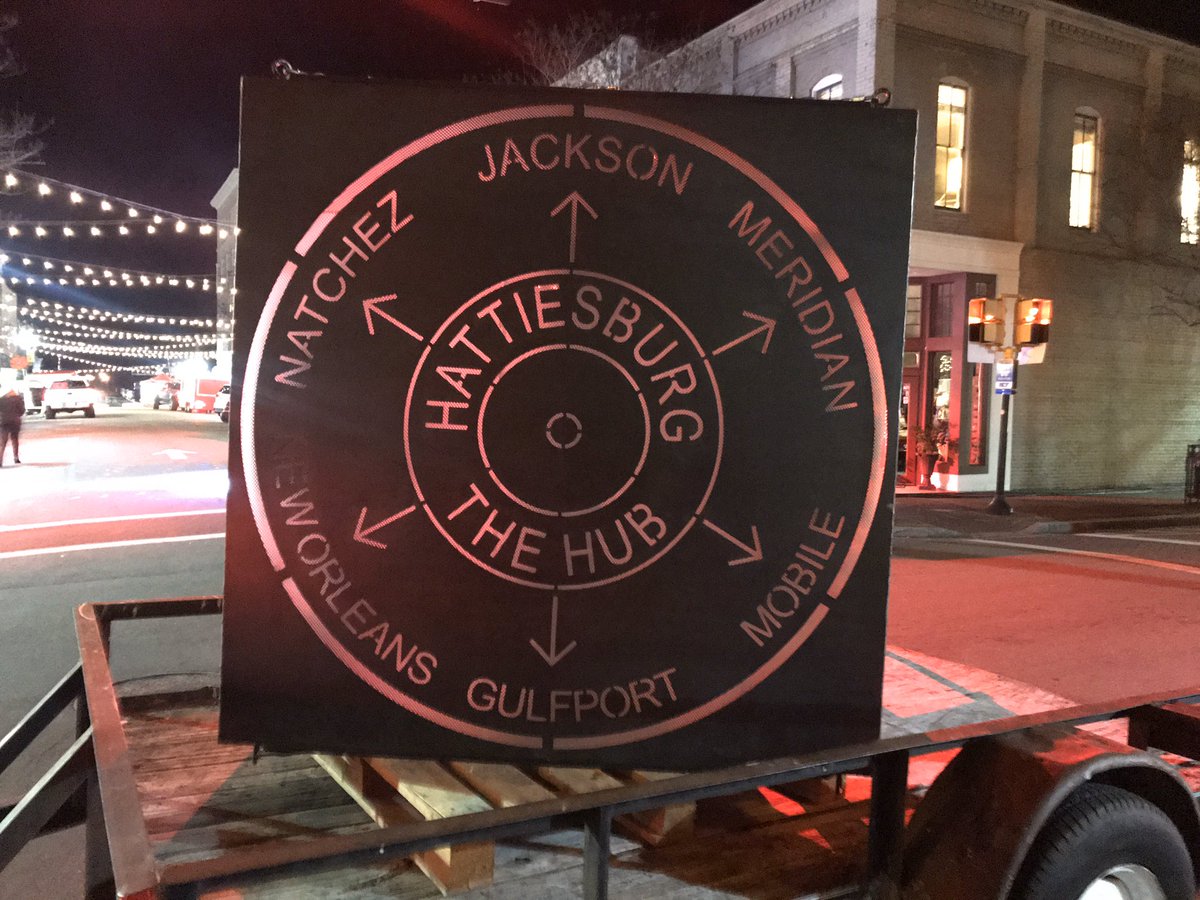 JACKSON
MERIDIAN
MOBILE
GULFPORT
NEW ORLEANS
NATCHEZ
HATTIESBURG
THE HUB